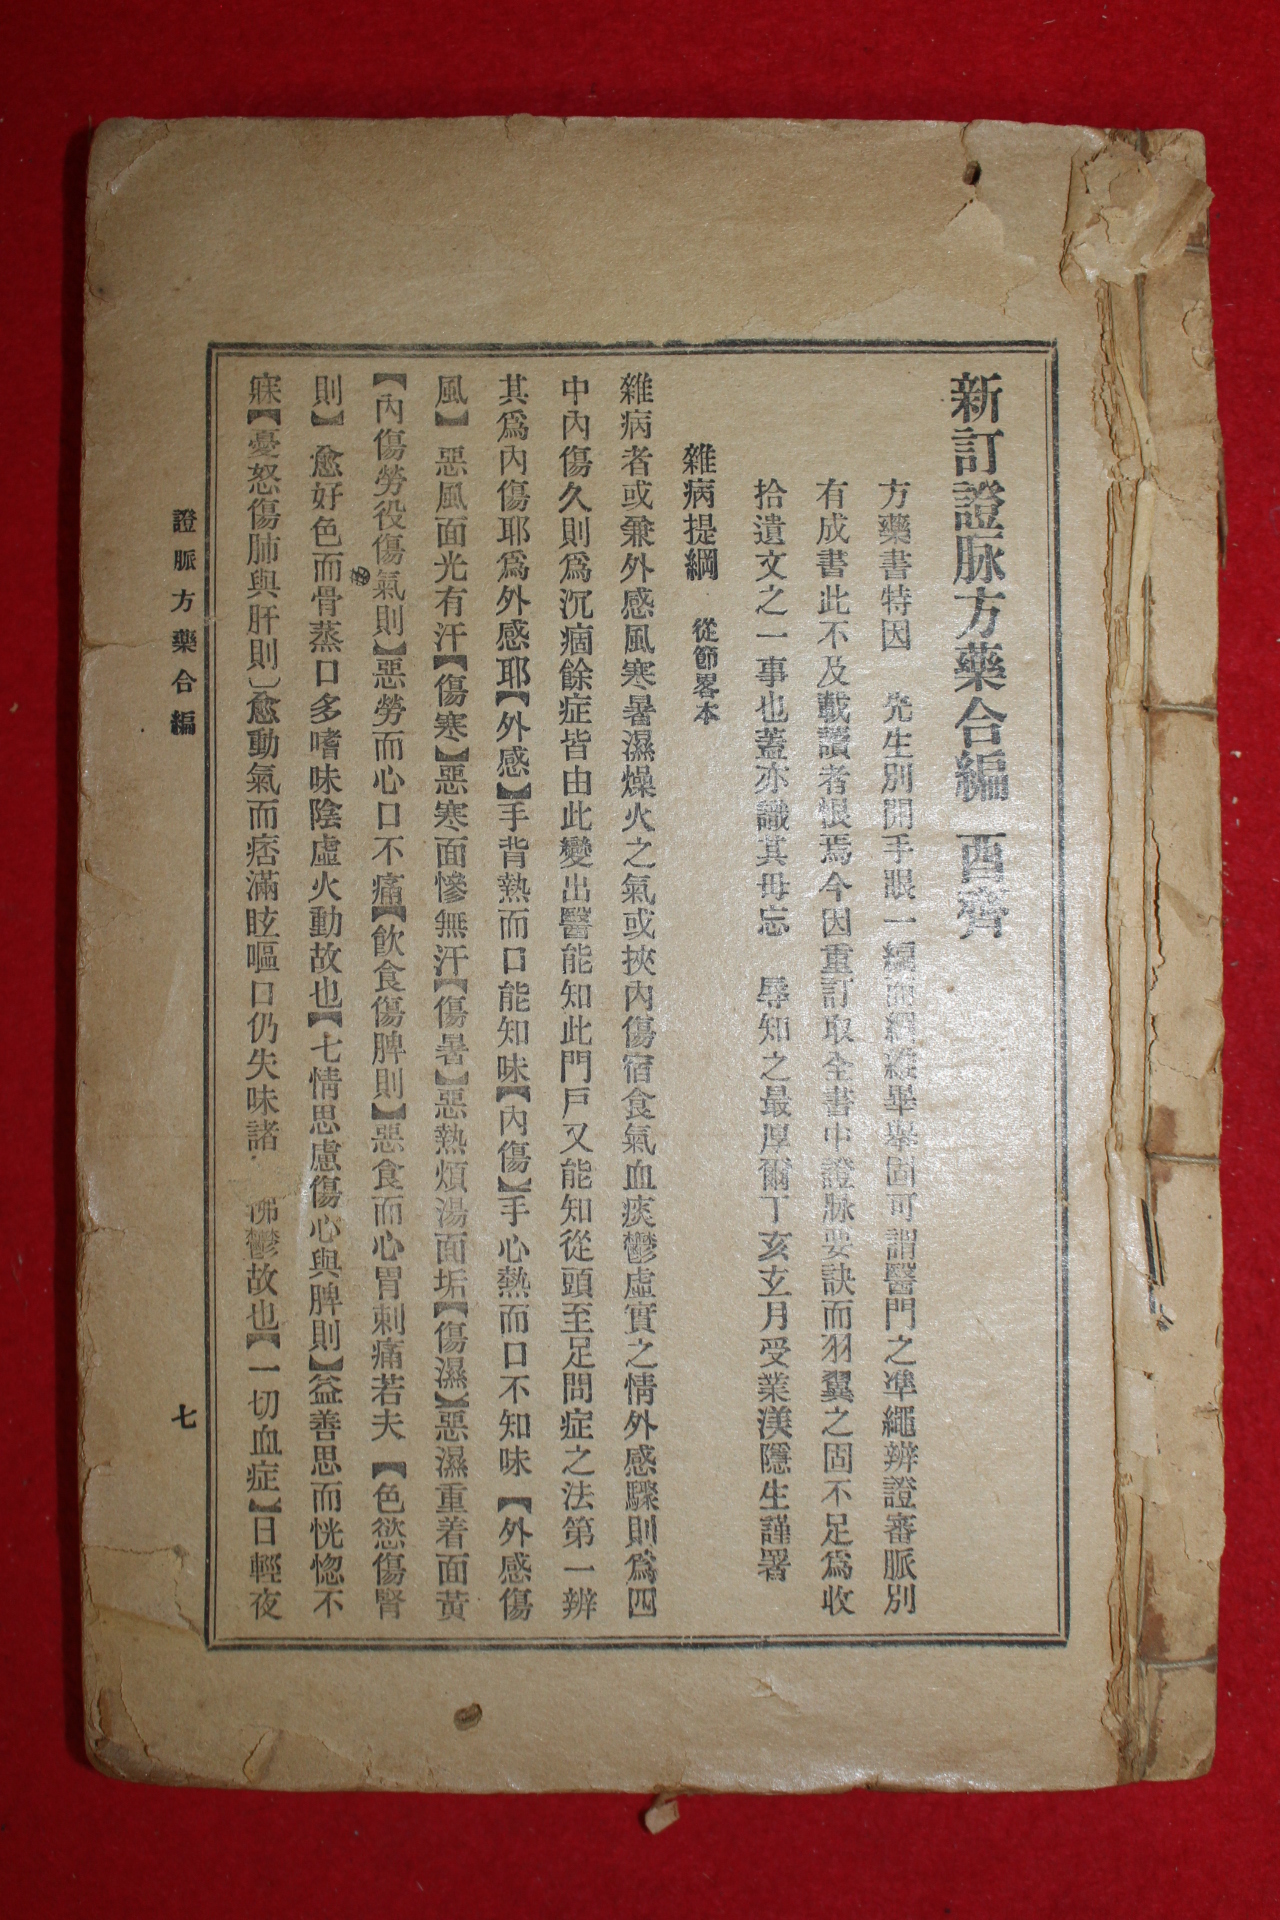 新訂證脉方藥合編 酉齊
方藥書特因 先生別開手眼一編而綱維畢擧固可謂醫門之準繩辨證審脈別
有成書此不及載讀者恨焉今因重訂取全書中證脉要訣而羽翼之固不足爲收
拾遺文之一事也蓋亦識其毋忘 辱知之最厚爾丁亥玄月受業渼隱生謹署
雜病提綱 從節畧本
雜病者或兼外感風寒暑濕燥火之氣或挾內傷宿食氣血痰鬱虛實之情外感驟則爲四
中內傷久則爲沉痼餘症皆由此變出醫能知此門戶又能知從頭至足問症之法第一辨
其爲內傷耶爲外感耶【外感】手背熱而口能知味【內傷】手心熱而口不知味【外感傷
風】惡風面光有汗【傷寒】惡寒面慘無汗【傷暑】惡熱煩湯面垢【傷濕】惡濕重着面黃
【內傷勞役傷氣則】惡勞而心口不痛【飮食傷脾則】惡食而心胃刺痛若夫【色慾傷腎
則】愈好色而骨蒸口多嗜味陰虛火動故也【七情思慮傷心與脾則】益善思而恍惚不
寐【憂怒傷肺與肝則】愈動氣而痞滿眩嘔口仍失味諸 怫鬱故也【一切血症】日輕夜
證脈方藥合編 七